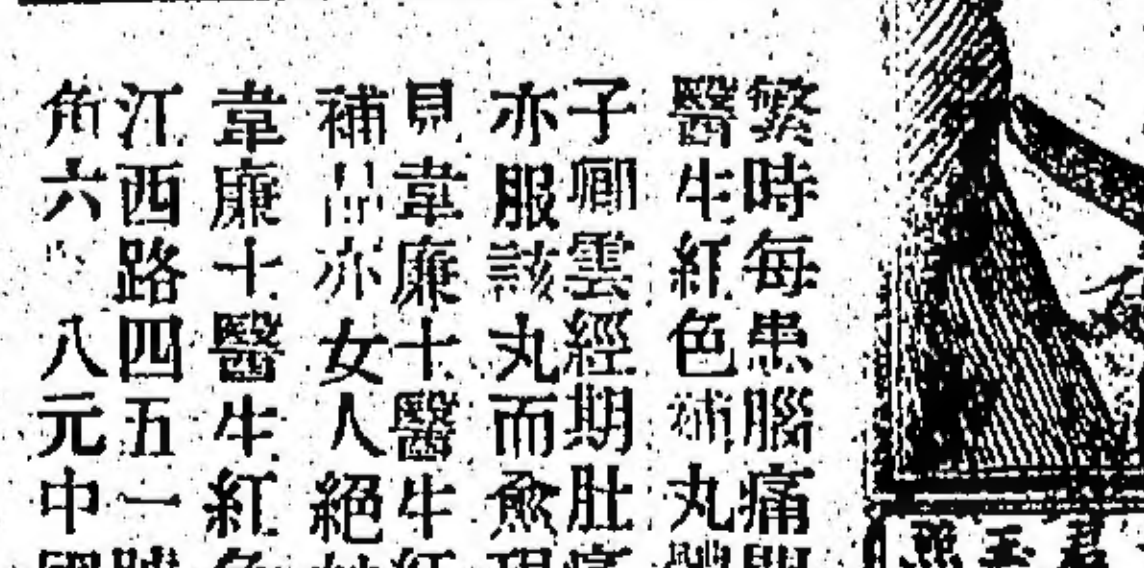 繁時每患腦痛
醫生紅色補丸
子卿雲經期肚痛
亦服該丸而愈現
見韋廉士醫生紅
補品亦女人絕妙
韋廉士醫生紅色
江西路四五一號
角六八元中國
君玉照